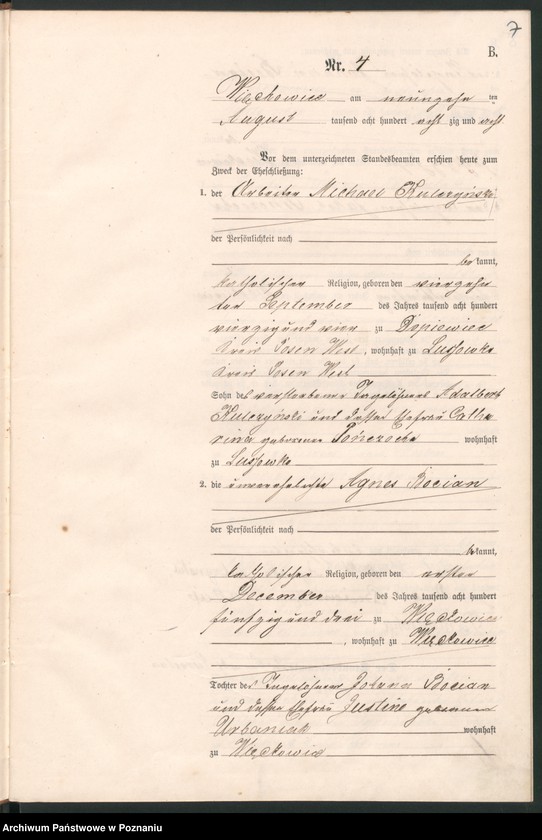 7
B.
Nr. 4
Więckowice am neunzehn ten
August tausend acht hundert acht zig und acht
Vor dem unterzeichneten Standesbeamten erschien heute zum
Zweck der Eheschließung:
1. der Arbeiter Michael Kulczyński
der Persönlichkeit nach
bekannt,
katholischer Religion, geboren den vierzehn
ten September des Jahres tausend acht hundert
vierzig und vier zu Dopiewiec
Kreis Posen West, wohnhaft zu Lussowko
Kreis Posen West
Sohn des verstorbenen Tagelöhners Adalbert
Kulczyński und dessen Ehefrau Catha
rina geborenen Pończocha wohnhaft
zu Lussowko
2. die unverehelichte Agnes Bocian
der Persönlichkeit nach
bekannt,
katholischer Religion, geboren den ersten
December des Jahres tausend acht hundert
fünfzig und drei zu Więckowice
, wohnhaft zu Więckowice
Tochter des Tagelöhners Johann Bocian
und dessen Ehefrau Justine geborenen
Urbaniak wohnhaft
zu Więckowice
Archiwum Państwowe w Poznaniu